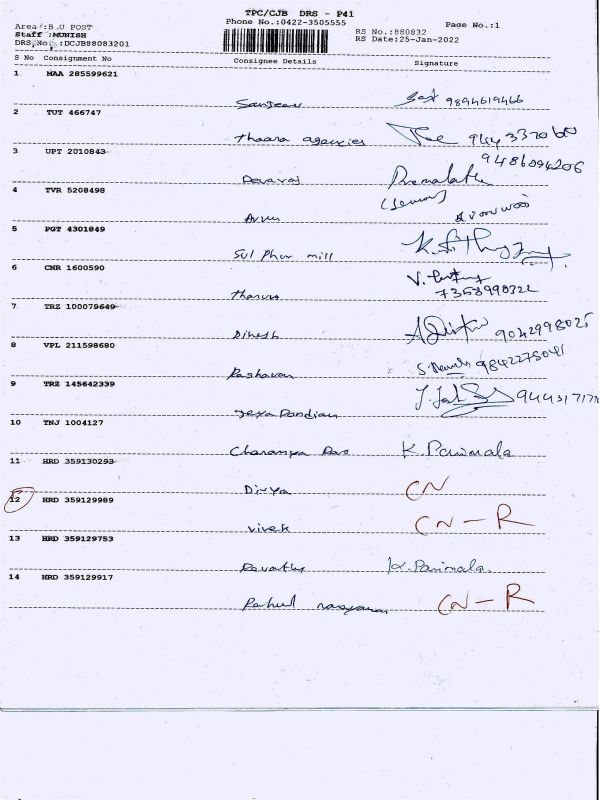 TPC/CJB DRS - P41
Phone No.:0422-3505555
Page No.:1
Area :B.U POST
Staff :MUNISH
DRS.No. :DCJB88083201
RS No.:880832
RS Date:25-Jan-2022
S No Consignment No Consignee Details Signature
1 MAA 285599621
Sanjeev 9894619466
2 TUT 466747
Thaara agencies
3 UPT 2010843
9486094206
Devaraj Premalatha
4 TVR 5208498
Arun
5 PGT 4301849
Sulphur mill
6 CNR 1600590
7358990322
7 TRZ 100079649
Dinesh 9042998025
8 VPL 211598680
Raghavan 9842275041
9 TRZ 145642339
Jeya Pandian
10 TNJ 1004127
Charanya K. Parimala
11 HRD 359130293
Divya CN
12 HRD 359129989
Vivek CN-R
13 HRD 359129753
Revathy K. Parimala.
14 HRD 359129917
Rahul narayanan CN-R